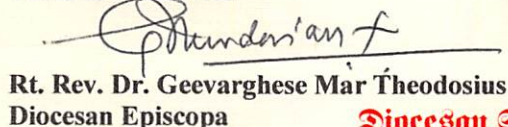 Rt. Rev. Dr. Geevarghese Mar Theodosius
Diocesan Episcopa Diocesan